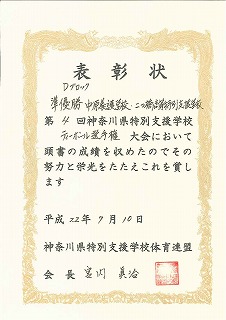 表彰状
Dブロック
準優勝 中原養護学校・二つ橋高等特別支援学校
第4回神奈川県特別支援学校
ティーボール選手権 大会において
頭書の成績を収めたのでその
努力と栄光をたたえこれを賞し
ます
平成22年7月10日
神奈川県特別支援学校体育連盟
会長